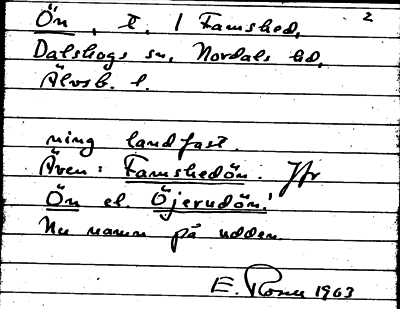 Ön, t. 1 Famshed, 2
Dalskogs sn, Nordals hd,
Älvsb. l.
ning landfast.
Även: Famshedön. Jfr
Ön el. Öjerudön!
Nu namn på udden.
E. Rosen 1963